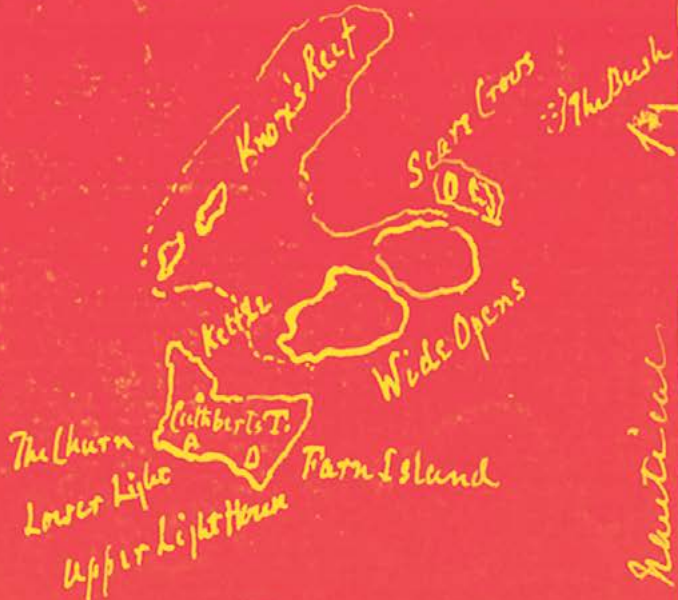 Knox's Reef
Scare Crows
The Bush
Kettle
Wide Opens
Cuthberts T.
The Churn
Farn Island
Lower Light
Upper Light House
Nautical